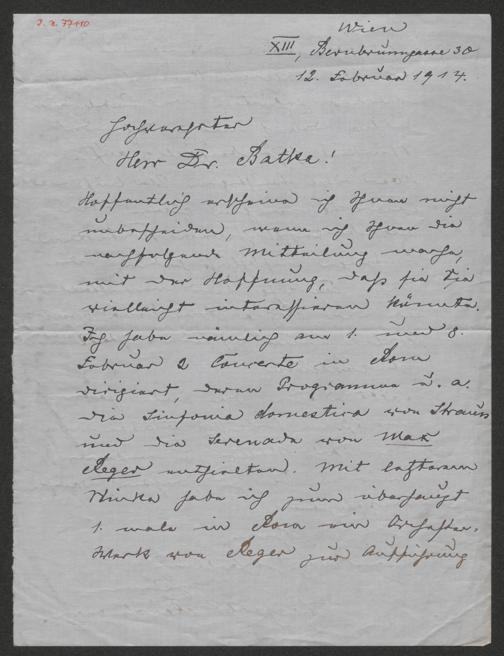 J. N. 77110
Wien
XIII, Bernbrunngasse 30
12. Februar 1914.
Hochverehrter
Herr Dr. Batka!
Hoffentlich erscheine ich Ihnen nicht
unbescheiden, wenn ich Ihnen die
nachfolgende Mitteilung mache,
mit der Hoffnung, daß sie Sie
vielleicht interessieren könnte.
Ich habe nämlich am 1. und 8.
Februar 2 Concerte in Rom
dirigiert, deren Programme u. a.
die Sinfonia domestica von Strauss
und die Serenade von Max
Reger enthielten. Mit letzterem
Werke habe ich zum überhaupt
1. male in Rom ein Orchester-
Werk von Reger zur Aufführung